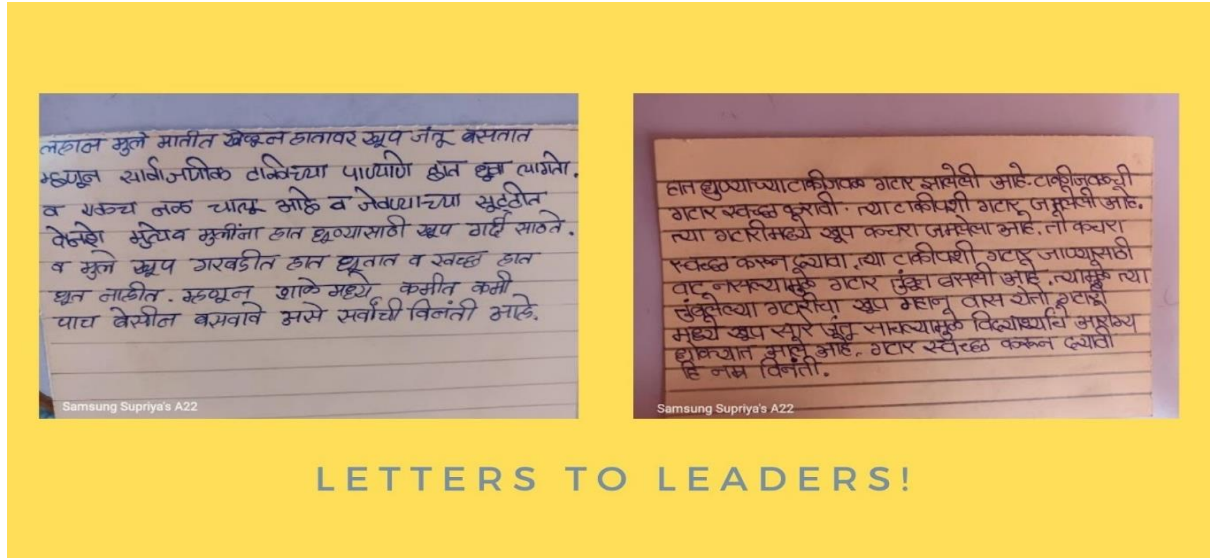 लहान मुले मातीत खेळून हातावर खूप जंतू बसतात
म्हणून सार्वजणीक टाकीच्या पाण्याणे हात धुवा लागतो.
व एकच नळ चालू आहे व जेवणाच्या सुट्टीत
मुलींना हात धूण्यासाठी खूप गर्दी साठते.
व मुले खूप गरबडीत हात धूतात व स्वच्छ हात
धूत नाहीत. म्हणून शाळेमध्ये कमीत कमी
पाच बेसीन बसवावे असे सर्वांची विनंती आहे.
Samsung Supriya's A22
हात धुण्याच्या टाकीजवळ गटार झालेली आहे. टाकीजवळची
गटार स्वच्छ करावी. त्या टाकीपशी गटार जमलेली आहे.
त्या गटारीमध्ये खूप कचरा जमलेला आहे. तो कचरा
स्वच्छ करून द्यावा. त्या टाकीपशी गटार जाण्यासाठी
वाट नसल्यामुळे गटार तुंबून बसली आहे. त्यामुळे त्या
तुंबलेल्या गटारीचा खूप घाण वास येतो गटारी
मध्ये खूप सारे जंतू साचल्यामुळे विद्यार्थ्यांचे आरोग्य
धोक्यात आले आहे. गटार स्वच्छ करून द्यावी
हि नम्र विनंती.
Samsung Supriya's A22
LETTERS TO LEADERS!